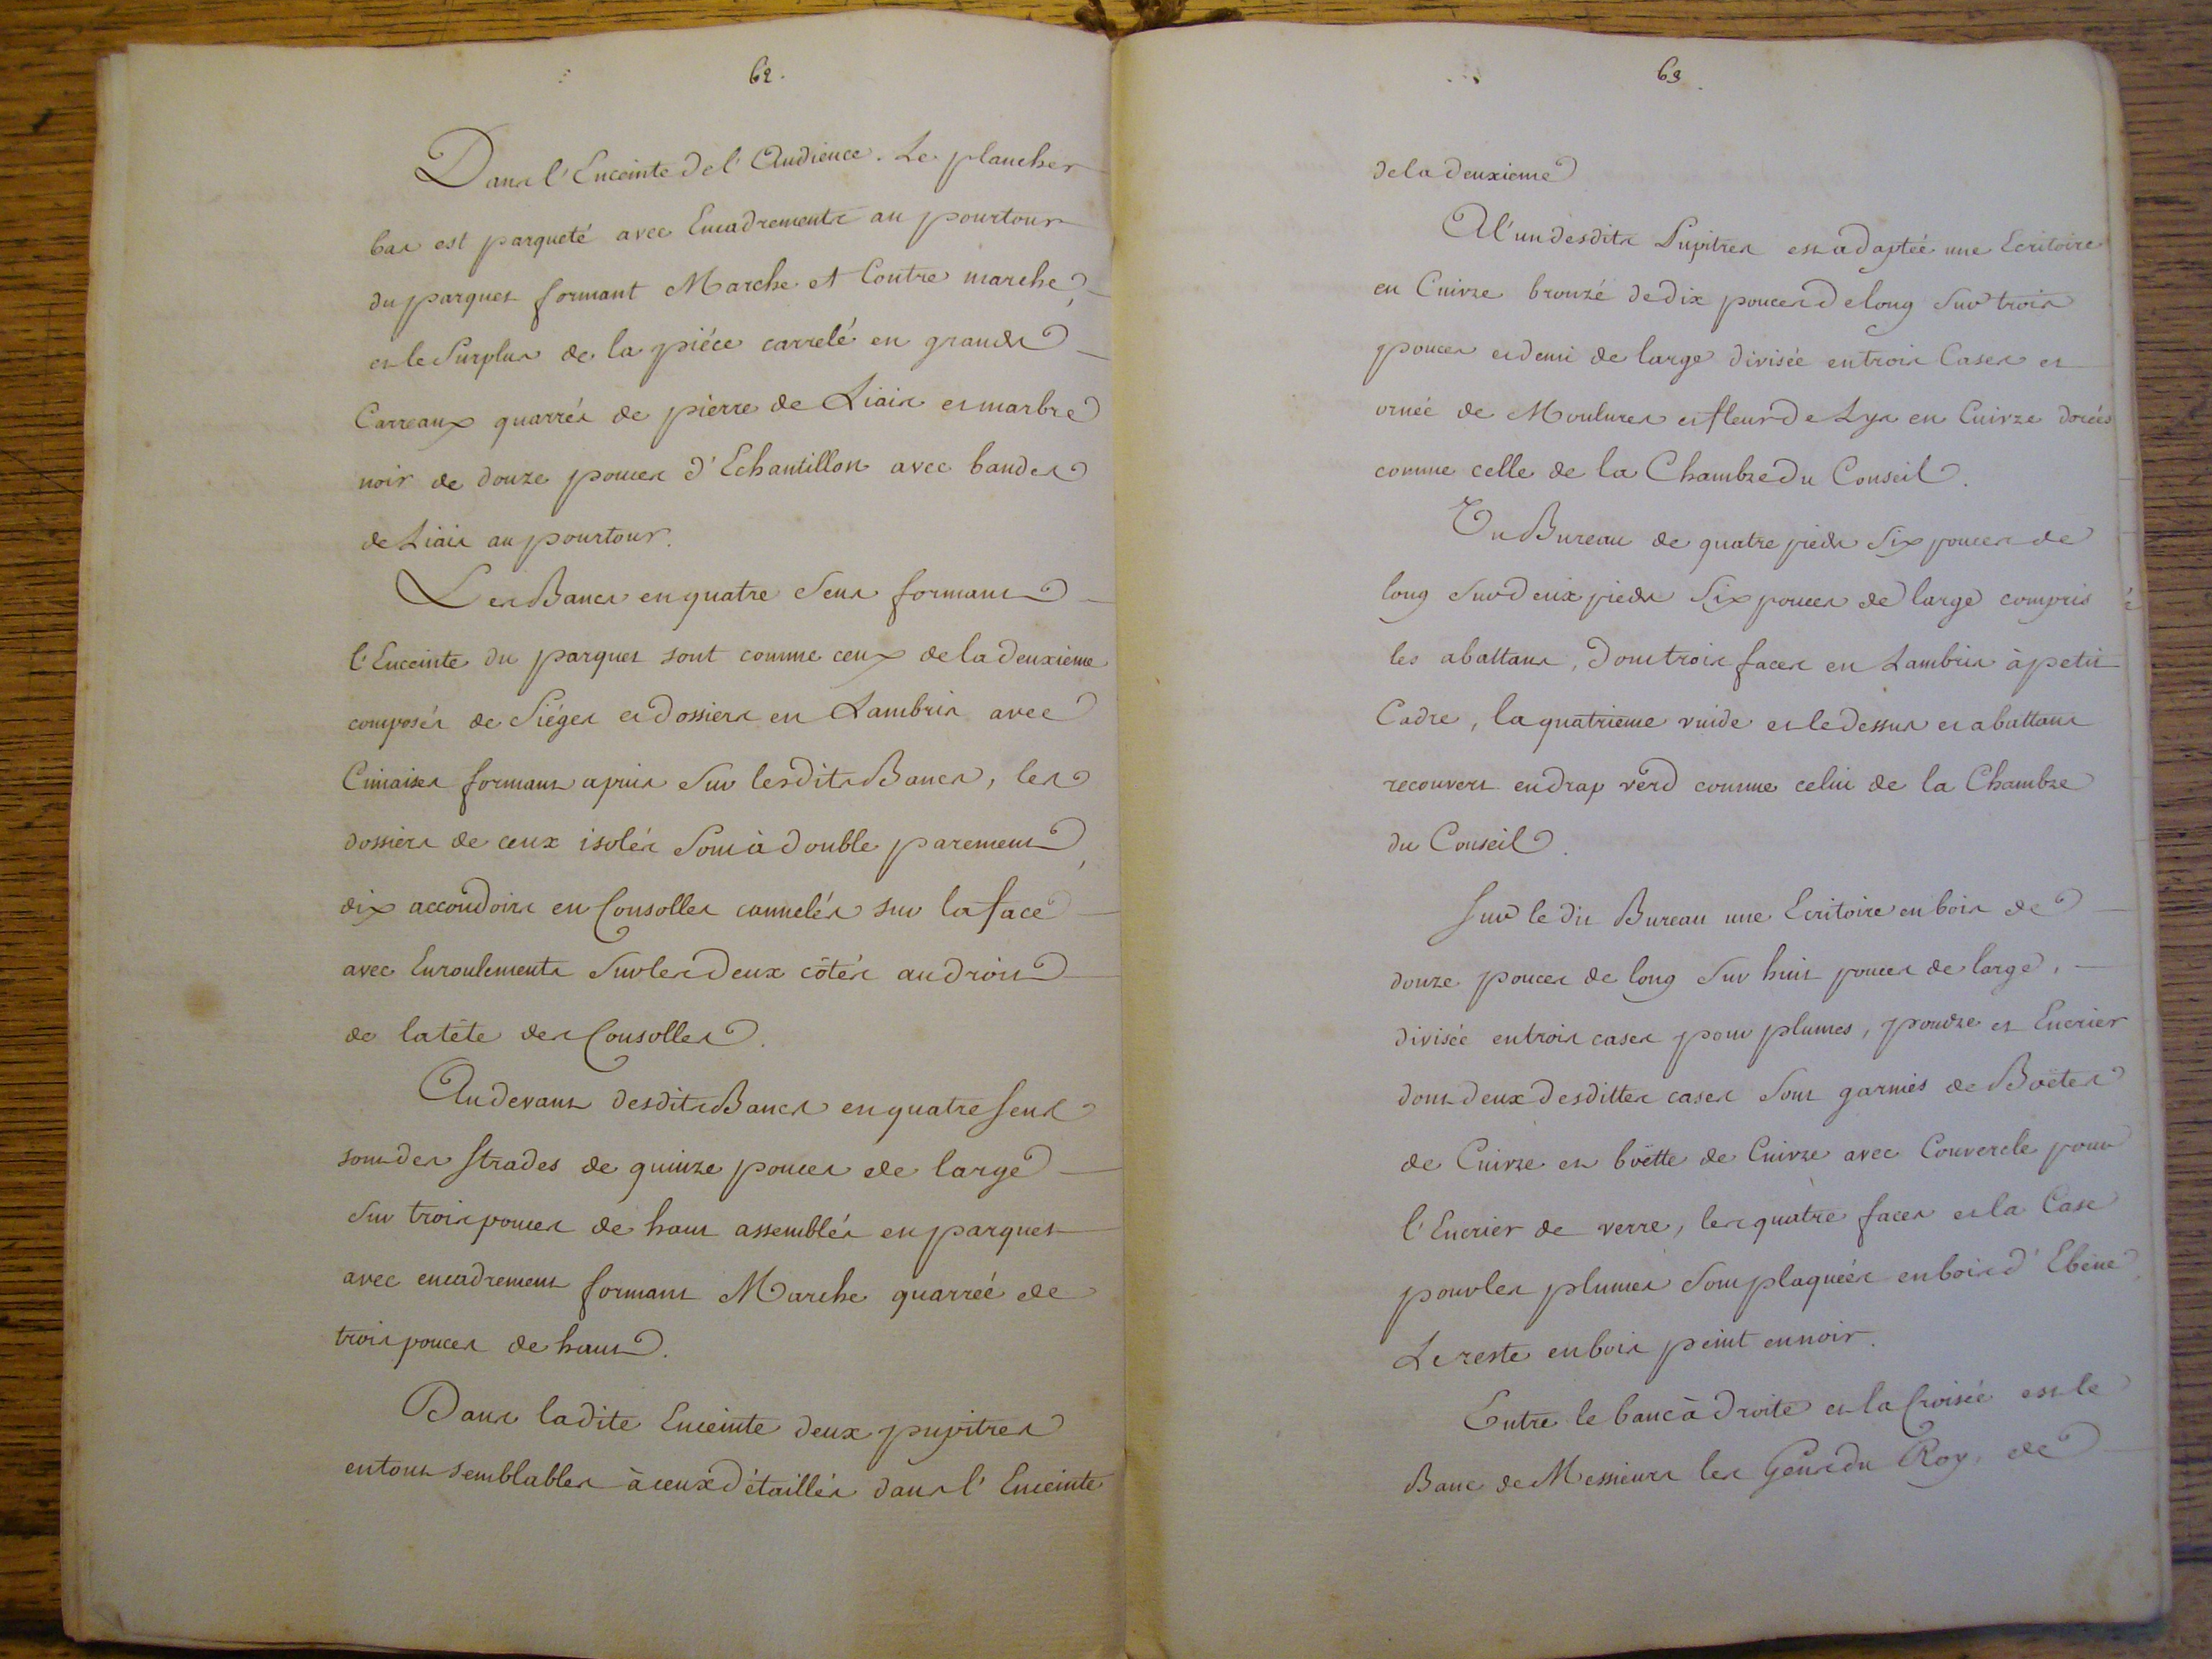 62.
Dans l'Enceinte de l'Audience. Le plancher
bas est parqueté avec Encadrements au pourtour
du parquet formant Marche et Contre marche,
et le Surplus de la piéce carrelé en grands
Carreaux quarrés de pierre de Liais et marbre
noir de douze pouces d'Echantillon avec bandes
de Liais au pourtour.
Les Bancs en quatre Sens formant
l'Enceinte du parquet sont comme ceux de la deuxieme
composés de Siéges et dossiers en Lambris avec
Cimaises formant apuis Sur lesdits Bancs, les
dossiers de ceux isolés Sont à double parement,
dix accoudoirs en Consolles cannelés sur la face
avec Enroulements Sur les deux côtés au droit
de la tête des Consolles.
Au devant desdits Bancs en quatre Sens
sont des Strades de quinze pouces de large
Sur trois pouces de haut assemblés en parquet
avec encadrement formant Marche quarréé de
trois pouces de haut.
Dans ladite Enceinte deux pupitres
en tout semblables à ceux détaillés dans l'Enceinte
63.
de la deuxieme
A l'un desdits Pupitres est adaptéé une Ecritoire
en Cuivre bronzé de dix pouces de long Sur trois
pouces et demi de large divisée en trois Cases et
ornéé de Moulures et fleur de Lys en Cuivre dorées
comme celle de la Chambre du Conseil.
Un Bureau de quatre pieds Six pouces de
long Sur deux pieds Six pouces de large compris
les abattans, dont trois faces en Lambris à petit
Cadre, la quatrieme vuide et le dessus et abattans
recouvert en drap verd comme celui de la Chambre
du Conseil.
Sur le dit Bureau une Ecritoire en bois de
douze pouces de long Sur huit pouces de large,
divisée en trois cases pour plumes, poudre et Encrier
dont deux desdittes cases Sont garnies de Boëtes
de Cuivre et boëtte de Cuivre avec Couvercle pour
l'Encrier de verre, les quatre faces et la Case
pour les plumes Sont plaquéés en bois d'Ebéne
Le reste en bois peint en noir.
Entre le banc à droite et la Croisée est le
Banc de Messieurs les Gens du Roy, de